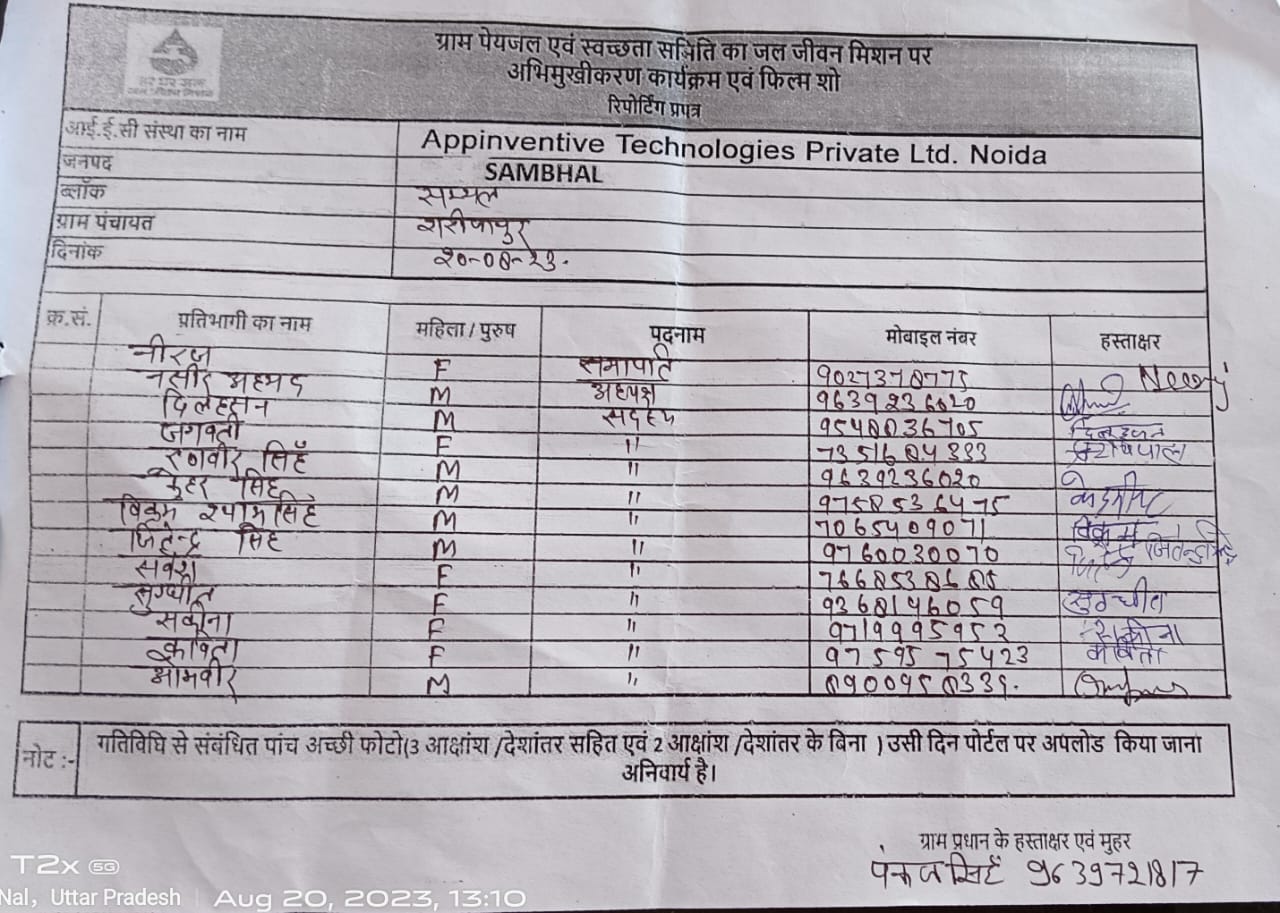 हर घर जल
जल जीवन मिशन
ग्राम पेयजल एवं स्वच्छता समिति का जल जीवन मिशन पर
अभिमुखीकरण कार्यक्रम एवं फिल्म शो
रिपोर्टिंग प्रपत्र
आई.ई.सी संस्था का नाम Appinventive Technologies Private Ltd. Noida
जनपद SAMBHAL
ब्लॉक सम्भल
ग्राम पंचायत शरीफापुर
दिनांक २०-08-२३.
क्र.सं. प्रतिभागी का नाम महिला / पुरुष पदनाम मोबाइल नंबर हस्ताक्षर
नीरज F सभापति 9027378775 Neeraj
नसीर अहमद M अध्यक्ष 9639236020
दिलहसन M सदस्य 9548036705
जगवती F " 7351604333
रणवीर सिहँ M " 9639236020
कुहर सिंह M " 9758536475
विक्रम श्याम सिहँ M " 7065409071 विक्रम
जितेन्द्र सिंह M " 9760030070 जितेन्द्र सिंह
F " 7668538688
F " 9368146059
सकीना F " 9719995952 सकीना
कविता F " 9759575423 कविता
ओमवीर M " 8900950339.
नोट :- गतिविधि से संबंधित पांच अच्छी फोटो(3 आक्षांश /देशांतर सहित एवं 2 आक्षांश /देशांतर के बिना ) उसी दिन पोर्टल पर अपलोड किया जाना
अनिवार्य है।
ग्राम प्रधान के हस्ताक्षर एवं मुहर
पंकज सिहँ 9639721817
T2x 5G
Nal, Uttar Pradesh | Aug 20, 2023, 13:10